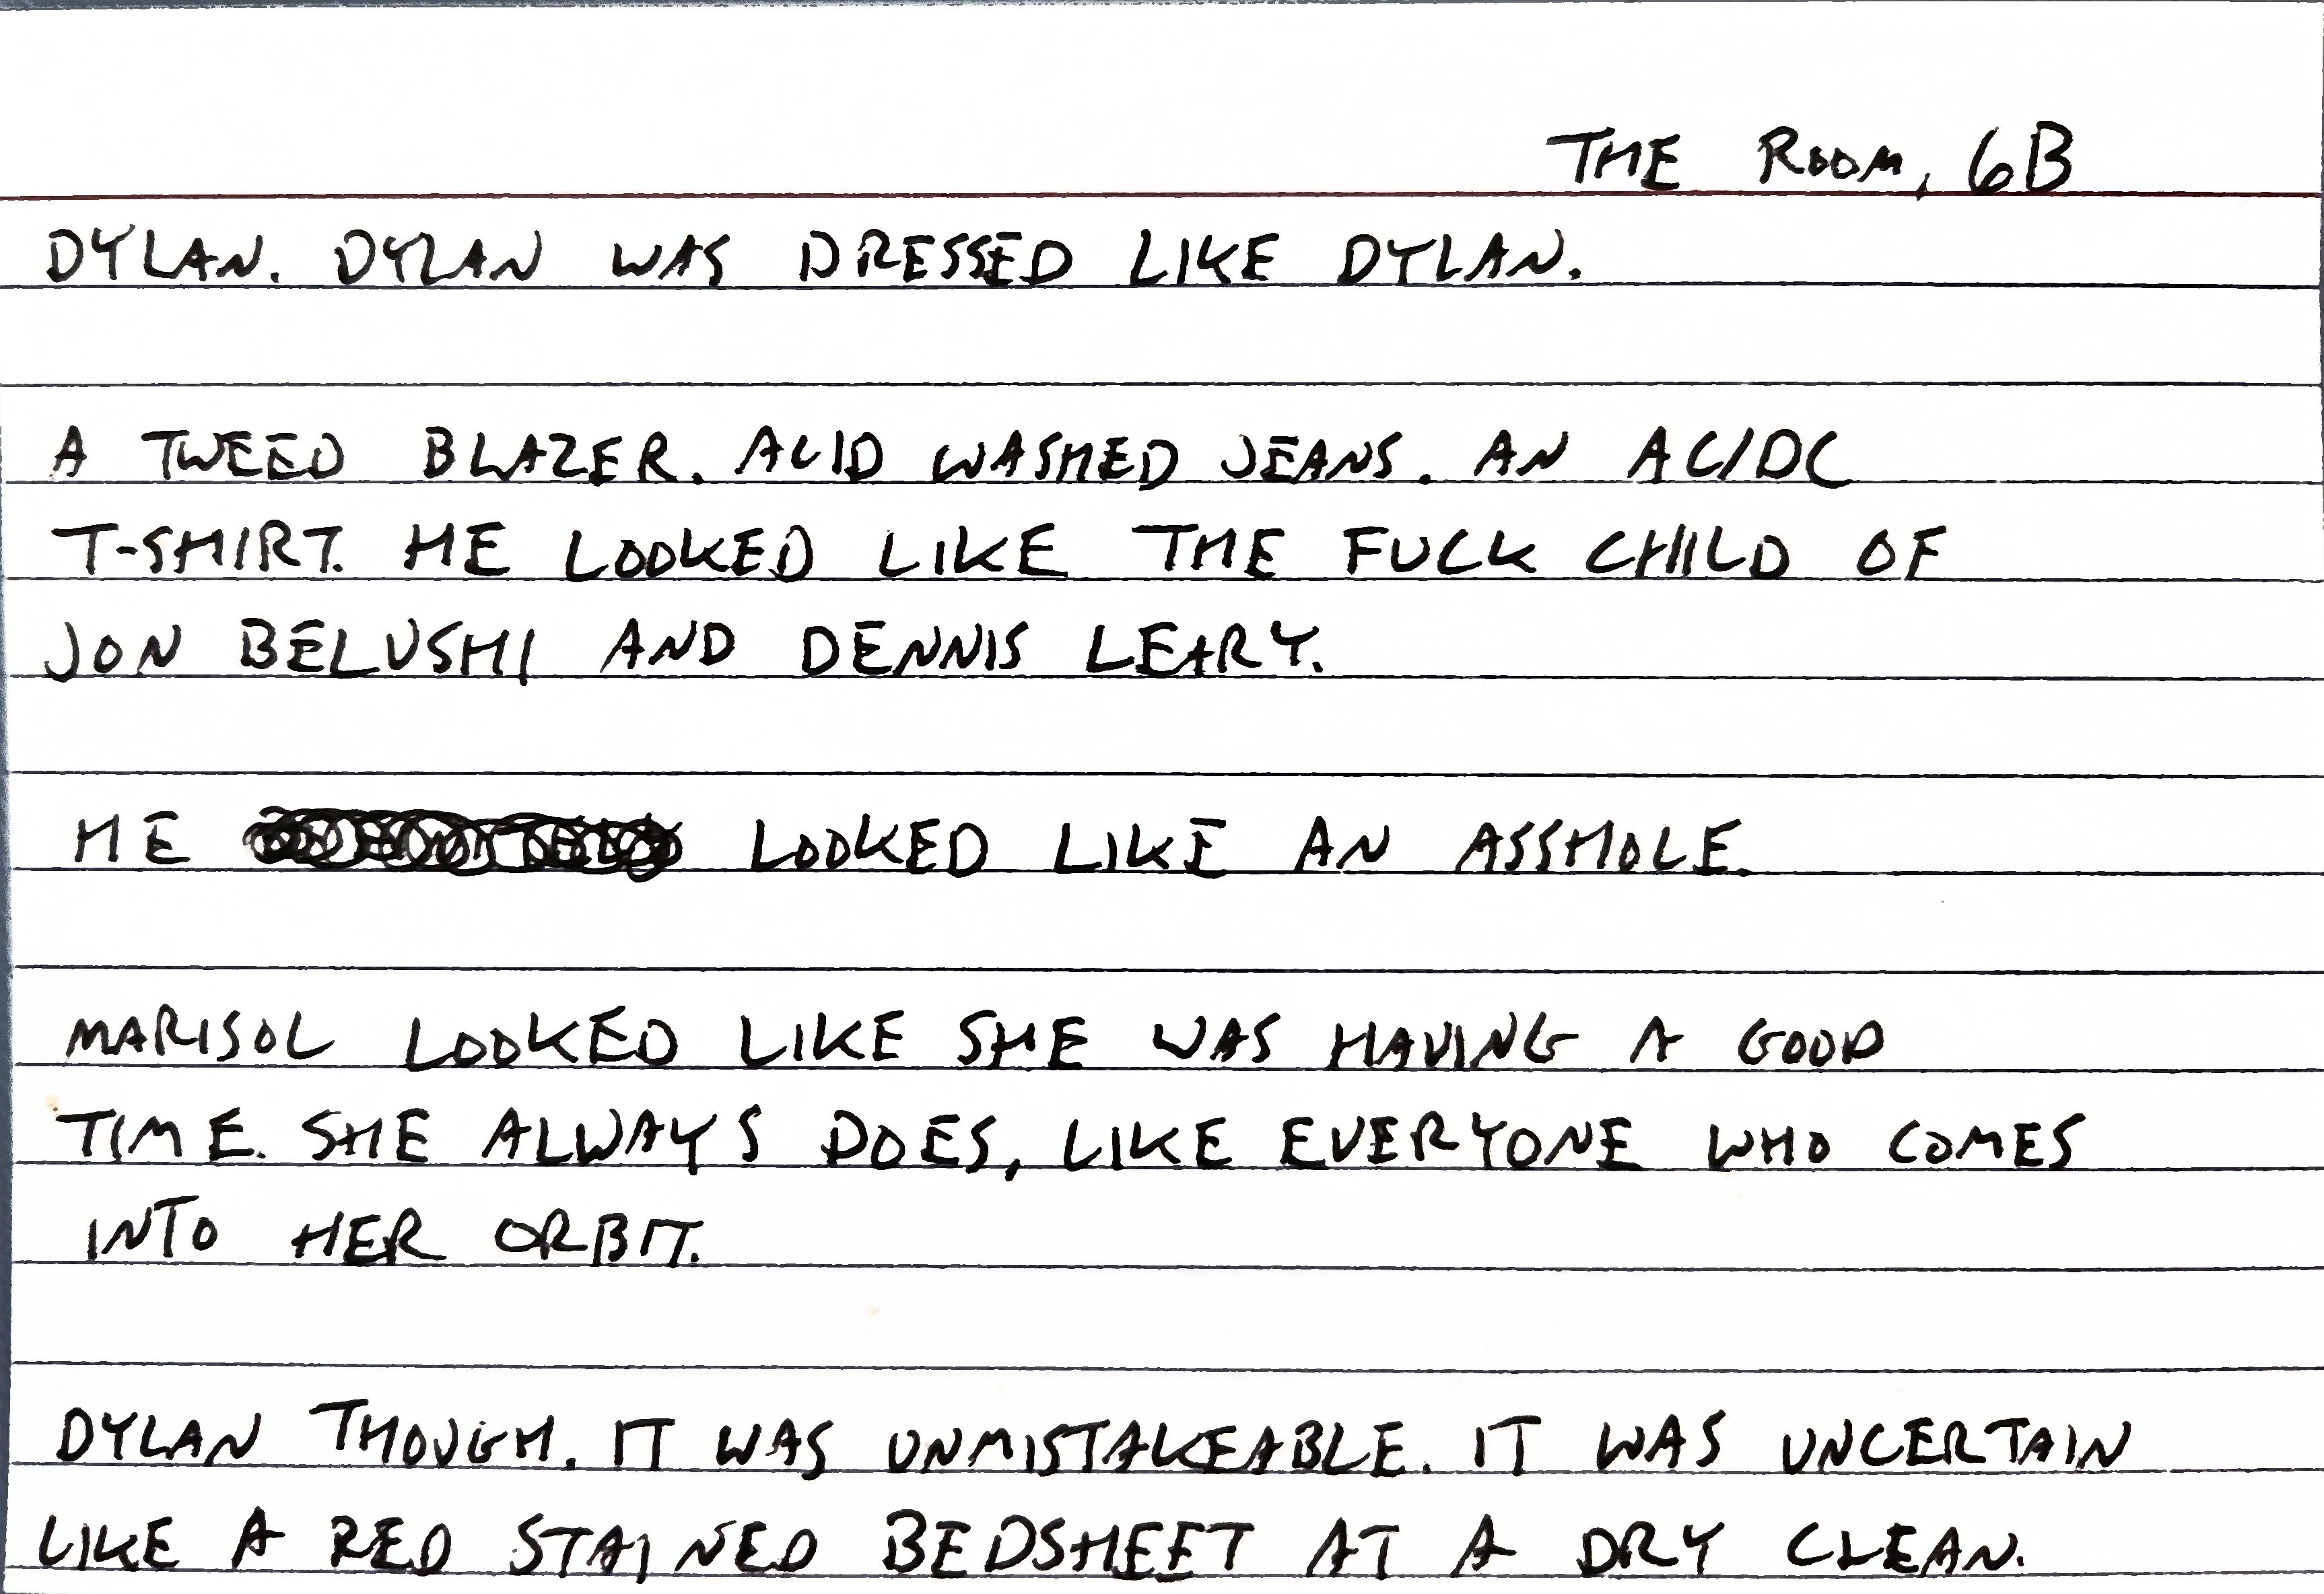 THE ROOM, 6B
DYLAN. DYLAN WAS DRESSED LIKE DYLAN.
A TWEED BLAZER. ACID WASHED JEANS. AN AC/DC
T-SHIRT. HE LOOKED LIKE THE FUCK CHILD OF
JON BELUSHI AND DENNIS LEARY.
HE LOOKED LIKE AN ASSHOLE.
MARISOL LOOKED LIKE SHE WAS HAVING A GOOD
TIME. SHE ALWAYS DOES, LIKE EVERYONE WHO COMES
INTO HER ORBIT.
DYLAN THOUGH. IT WAS UNMISTAKEABLE. IT WAS UNCERTAIN
LIKE A RED STAINED BEDSHEET AT A DRY CLEAN.